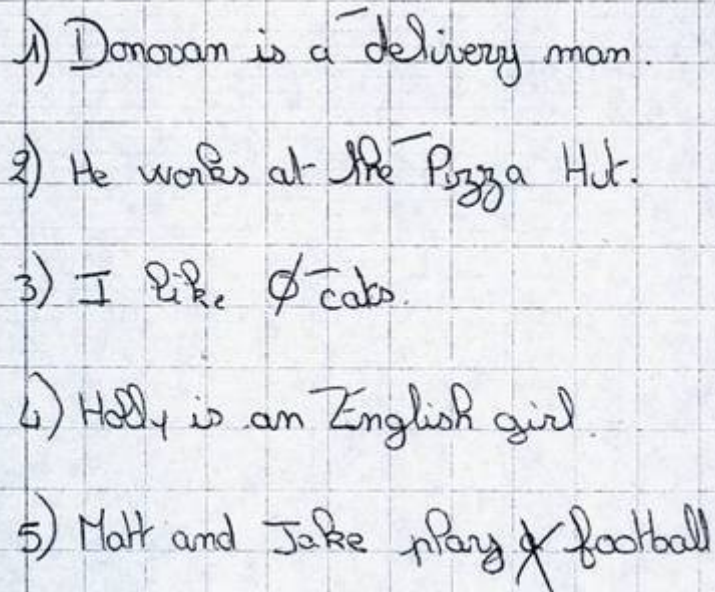 1) Donovan is a delivery man.
2) He works at the Pizza Hut.
3) I like Ø cats.
4) Holly is an English girl.
5) Matt and Jake play football